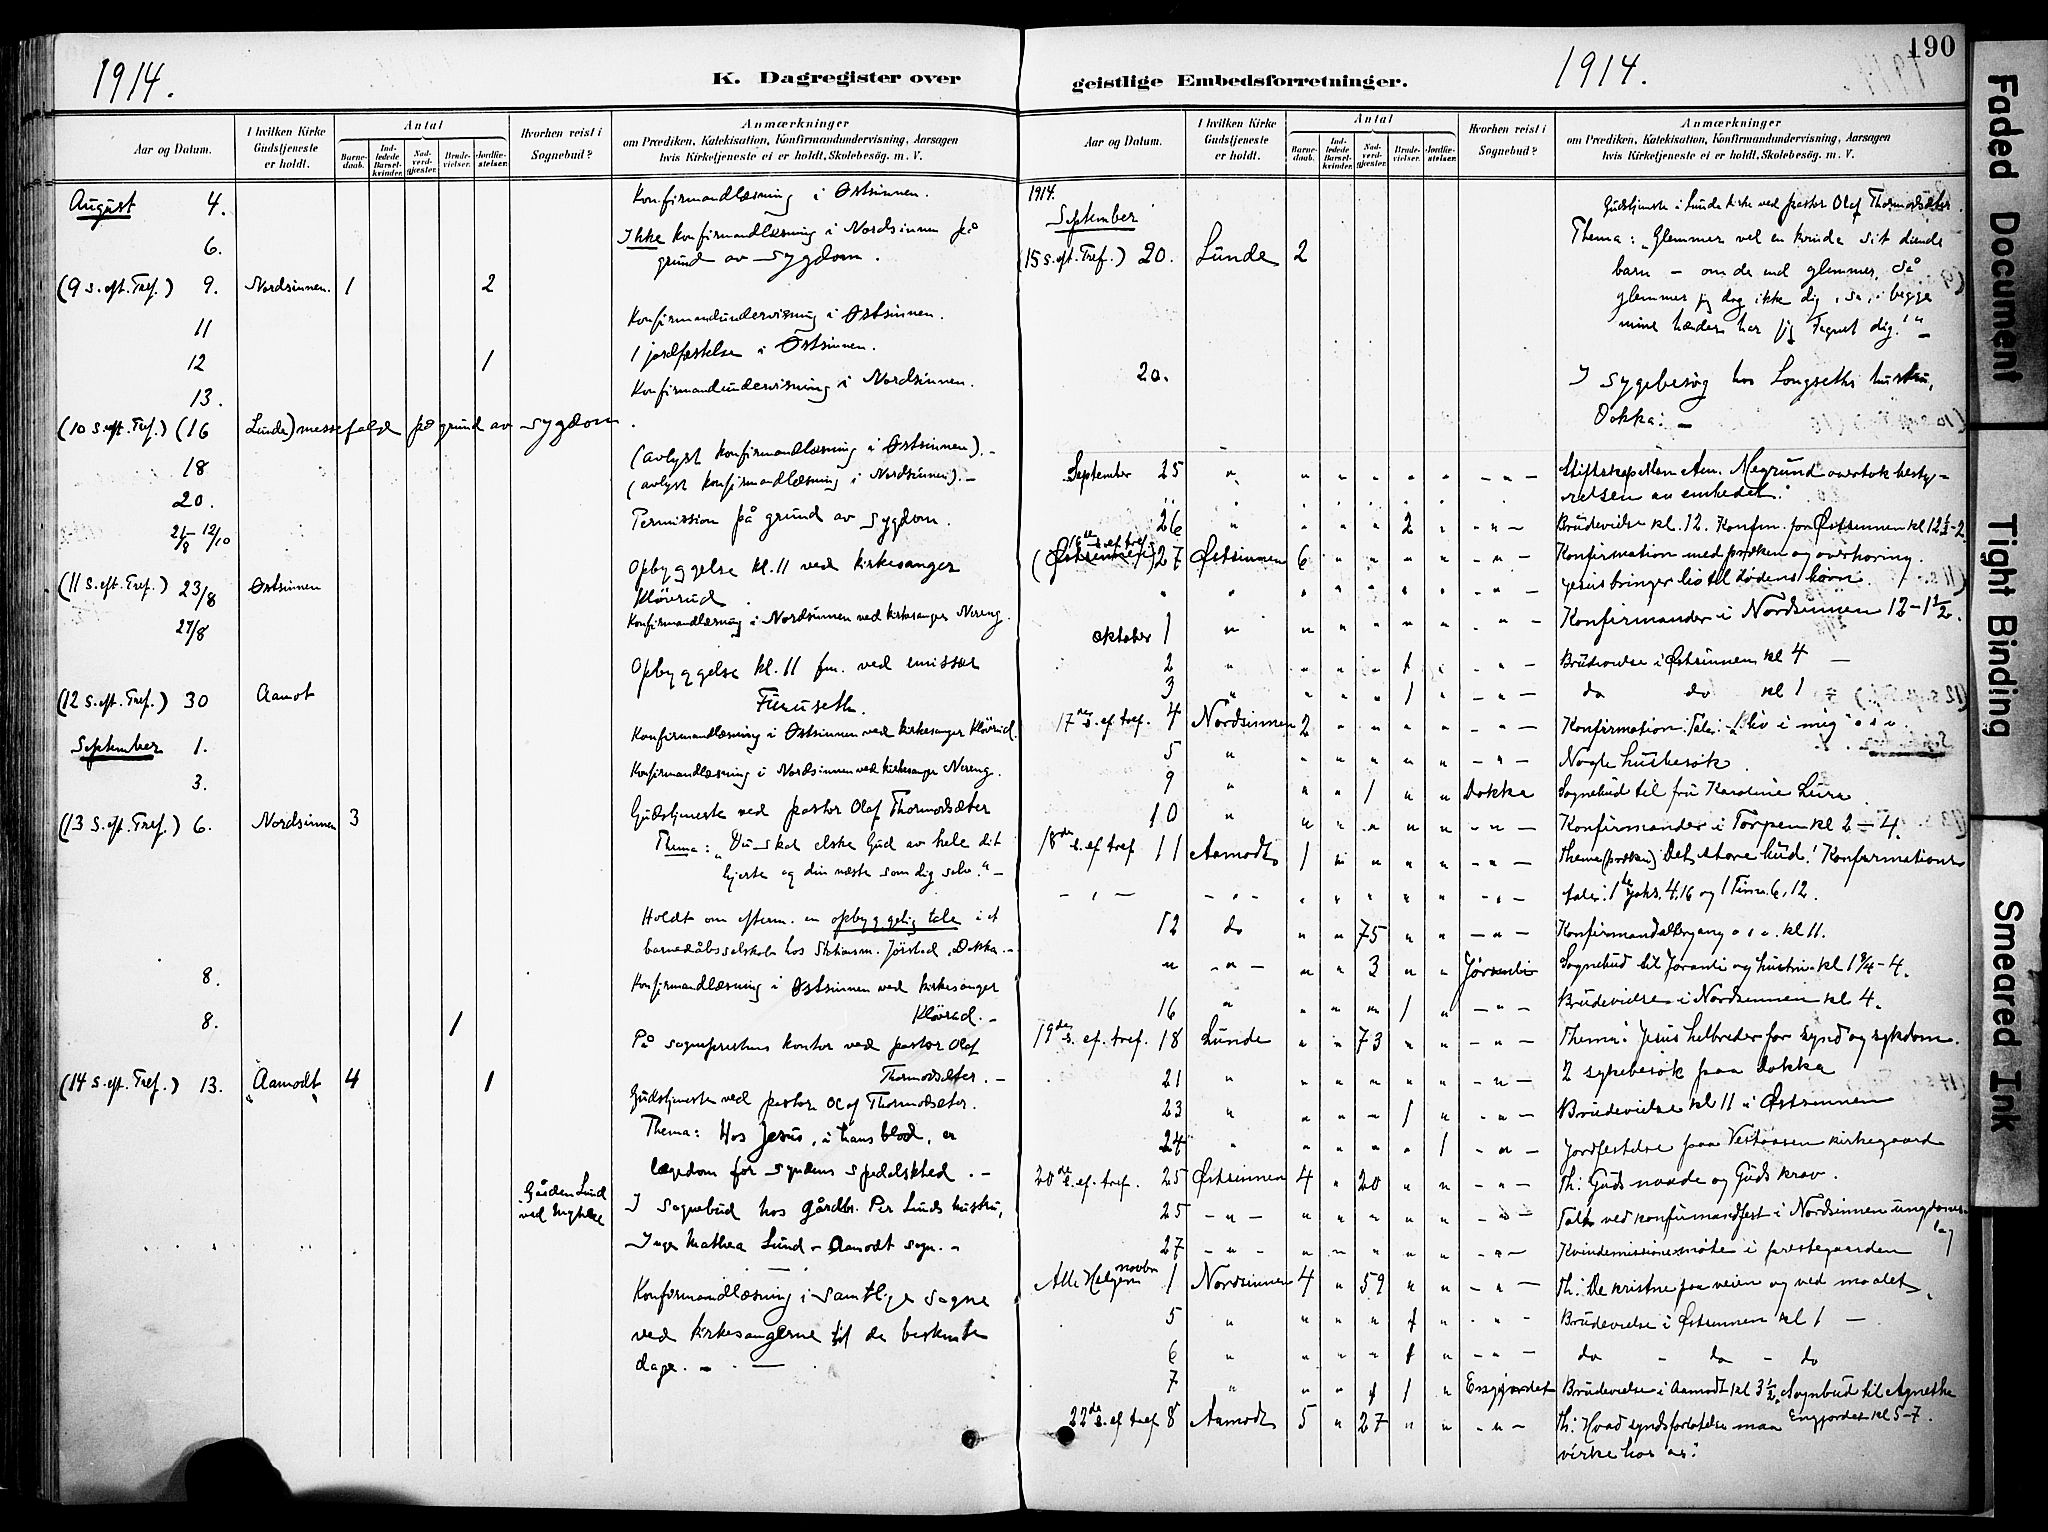 1914.
K. Dagregister over
Aar og Datum.
I hvilken Kirke Gudstjeneste er holdt.
Antal
Barnedaab.
Indledede Barselkvinder.
Nadverdgjester.
Brudevielser.
Jordfæstelser.
Hvorhen reist i Sognebud?
Anmærkninger
om Prædiken, Katekisation, Konfirmandundervisning, Aarsagen
hvis Kirketjeneste ei er holdt, Skolebesøg. m. V.
August 4. Konfirmandlæsning i Østsinnen.
6. Ikke konfirmandlæsning i Nordsinnen på
grund av sygdom.
(9 s. eft. Tref.) 9. Nordsinnen. 1 2
11 Konfirmandundervisning i Østsinnen.
12 1 1 jordfæstelse i Østsinnen.
13. Konfirmandundervisning i Nordsinnen.
(10 s. eft. Tref.) (16 Lunde) messefald på grund av sygdom.
18 (avlyst konfirmandlæsning i Østsinnen). -
20. (avlyst konfirmandlæsning i Nordsinnen). -
21/8 - 12/10 Permission på grund av sygdom.
(11 s. eft. Tref.) 23/8 Østsinnen Opbyggelse kl. 11 ved kirkesanger
Kløvrud.
27/8 Konfirmandlæsning i Nordsinnen ved kirkesanger Nereng.
(12 s. eft. Tref.) 30 Aamot Opbyggelse kl. 11 fm. ved emissær
Furuseth.
September 1. Konfirmandlæsning i Østsinnen ved kirkesanger Kløvrud.
3. Konfirmandlæsning i Nordsinnen ved kirkesanger Nereng.
(13 s. eft. Tref.) 6. Nordsinnen 3 Gudstjeneste ved pastor Olaf Thormodsæter
Thema: "Du skal elske Gud av hele dit
hjerte og din næste som dig selv." -
Holdt om efterm. en opbyggelig tale i et
barnedåbsselskab hos Stationsm. Jørstad, Dokka. -
8. Konfirmandlæsning i Østsinnen ved kirkesanger
Kløvrud. -
8. 1 På sogneprestens kontor ved pastor Olaf
Thormodsæter. -
(14 s. eft. Tref.) 13. "Aamodt" 4 1 Gudstjeneste ved pastor Olaf Thormodsæter.
Thema: Hos Jesus, i hans blod, er
lægedom for syndens spedalskhed. -
Gården Lund I Sognebud hos gårdbr. Per Lunds hustru,
Inger Mathea Lund - Aamodt sogn. -
Konfirmandlæsning i samtlige sogne
ved kirkesangerne til de bestemte
dage. -
190
geistlige Embedsforretninger.
1914.
Aar og Datum.
I hvilken Kirke Gudstjeneste er holdt.
Antal
Barnedaab.
Indledede Barselkvinder.
Nadverdgjester.
Brudevielser.
Jordfæstelser.
Hvorhen reist i Sognebud?
Anmærkninger
om Prædiken, Katekisation, Konfirmandundervisning, Aarsagen
hvis Kirketjeneste ei er holdt, Skolebesøg. m. V.
1914. Gudstjeneste i Lunde kirke ved pastor Olaf Thormodsæter.
September
(15 s. eft. Tref.) 20. Lunde 2 Thema: "Glemmer vel en kvinde sit diende
barn - om de end glemmer, så
glemmer jeg dog ikke dig, se, i begge
mine hænder har jeg tegnet dig!" -
20. I Sygebesøg hos Longseths hustru,
Dokka. -
September 25 " " " " " " - " - Stiftskapellan Am. Negrund overtok besty-
relsen av embedet.
26 " " " " 2 " - " - Brudevielse kl. 12. Konfm. for Østsinnen kl 12½-2.
(16de s. ef tref.) 27 Østsinnen 6 " " " " - " - Konfirmation med præken og overhøring.
Jesus bringer liv til dødens hjem.
oktober 1 " " " " " " - " - Konfirmander i Nordsinnen 12-1½.
2 " " " " 1 " - " - Brudevielse i Østsinnen kl 4 -
3 " " " " 1 " - " - do do kl 1
17de s. ef tref. 4 Nordsinnen 2 " " " " - " - Konfirmation. Tale: "Bliv i mig" o s v.
5 " " " " " " - " - Nogle husbesøk.
9 " " " 1 " " Dokka Sognebud til fru Karoline Lura.
10 " " " " " " - " - Konfirmander i Torpen kl 2-4.
18de s. ef tref 11 Aamodt 1 " " " " - " - Thema (præken) Det store bud! Konfirmations-
tale: 1de Johs. 4.16 og 1 Tim. 6, 12.
12 do " " 75 " " - " - Konfirmandaltergang o s v. kl 11.
" - " - " " 3 " " Jøranli Sognebud til Jøranli og hustru kl 1¾-4.
16 " " " " 1 " - " - Brudevielse i Nordsinnen kl 4.
19de s. ef. tref. 18 Lunde " " 73 " " - " - Thema: Jesus helbreder for synd og sykdom.
21 " " " " " " - " - 2 sykebesøk paa Dokka
23 " " " " 1 " - " - Brudevielse kl 11 i Østsinnen
24 " " " " " 1 - " - Jordfestelse paa Vestaasen kirkegaard
20de s. ef. tref. 25 Østsinnen 4 " 20 " " - " - Th: Guds naade og Guds krav.
25 - " - " " " " " - " - Talt ved konfirmandfest i Nordsinnen ungdoms-
lag
27 - " - " " " " " - " - Kvindemissionsmøte i prestegaarden
Alle Helgen novbr 1 Nordsinnen 4 " 59 " " - " - Th: De kristne paa veien og ved maalet.
5 " " " " 1 " - " - Brudevielse i Østsinnen kl 1 -
6 " " " " 1 " - " - do - do - do
7 " " " 1 1 " Engjordet Brudevielse i Aamodt kl 3½. Sognbud til Agnethe
Engjordet kl 5-7.
22de s. ef tref 8 Aamodt 5 " 27 " " - " - Th: Hvad syndsforlatelse maa
virke hos os:
Faded Document
Tight Binding
Smeared Ink